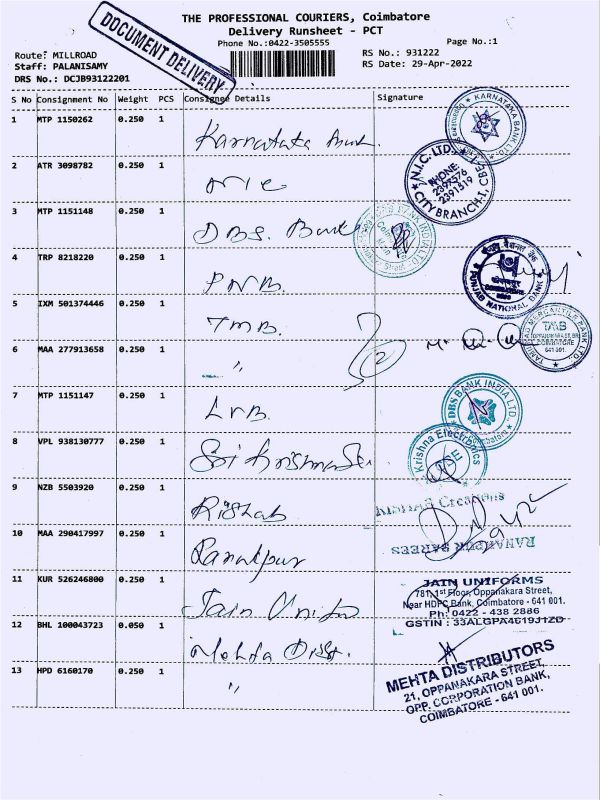 THE PROFESSIONAL COURIERS, Coimbatore
Delivery Runsheet - PCT
Phone No.:0422-3505555
Page No.:1
DOCUMENT DELIVERY
Route: MILLROAD
Staff: PALANISAMY
DRS No.: DCJB93122201
RS No.: 931222
RS Date: 29-Apr-2022
S No Consignment No Weight PCS Consignee Details Signature
1 MTP 1150262 0.250 1
Karnataka Bank.
KARNATAKA BANK LTD.
2 ATR 3098782 0.250 1
NIC
N.I.C. LTD.
PHONE:
2397576
2391519
CITY BRANCH-I, CBE
3 MTP 1151148 0.250 1
DBS. Bank
DBS BANK INDIA LTD.
4 TRP 8218220 0.250 1
PNB.
पंजाब नैशनल बैंक
PUNJAB NATIONAL BANK
5 IXM 501374446 0.250 1
TMB.
TAMILNAD MERCANTILE BANK LTD.
TMB
COIMBATORE
641 001.
6 MAA 277913658 0.250 1
"
2
7 MTP 1151147 0.250 1
LVB.
DBS BANK INDIA LTD.
Coimbatore
8 VPL 938130777 0.250 1
Sri Krishna
Krishna Electronics
9 NZB 5503920 0.250 1
Rishab
RISHAB Creations
10 MAA 290417997 0.250 1
Ranakpur
RANAKPUR SAREES
11 KUR 526246800 0.250 1
Jain Uniform
JAIN UNIFORMS
781, 1st Floor, Oppanakara Street,
Near HDFC Bank, Coimbatore - 641 001.
Ph: 0422 - 438 2886
GSTIN : 33ALGPA4619J1ZD
12 BHL 100043723 0.050 1
Mehta Dist.
13 HPD 6160170 0.250 1
"
MEHTA DISTRIBUTORS
21, OPPANAKARA STREET,
OPP. CORPORATION BANK,
COIMBATORE - 641 001.